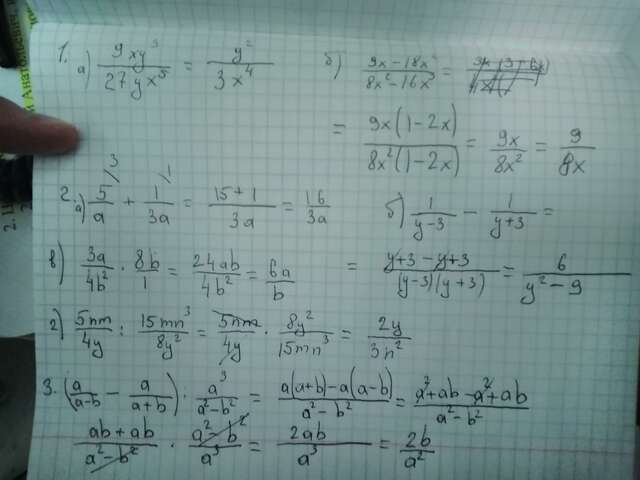 1. а) 9xy³/27yx⁵ = y²/3x⁴ б) 9x-18x²/8x²-16x³ =
= 9x(1-2x)/8x²(1-2x) = 9x/8x² = 9/8x
2. а) 5/a + 1/3a = 15+1/3a = 16/3a б) 1/y-3 - 1/y+3 =
= y+3-y+3/(y-3)(y+3) = 6/y²-9
в) 3a/4b² · 8b/1 = 24ab/4b² = 6a/b
г) 5nm/4y : 15mn³/8y² = 5nm/4y · 8y²/15mn³ = 2y/3n²
3. (a/a-b - a/a+b) : a³/a²-b² = a(a+b)-a(a-b)/a²-b² = a²+ab-a²+ab/a²-b²
ab+ab/a²-b² · a²-b²/a³ = 2ab/a³ = 2b/a²